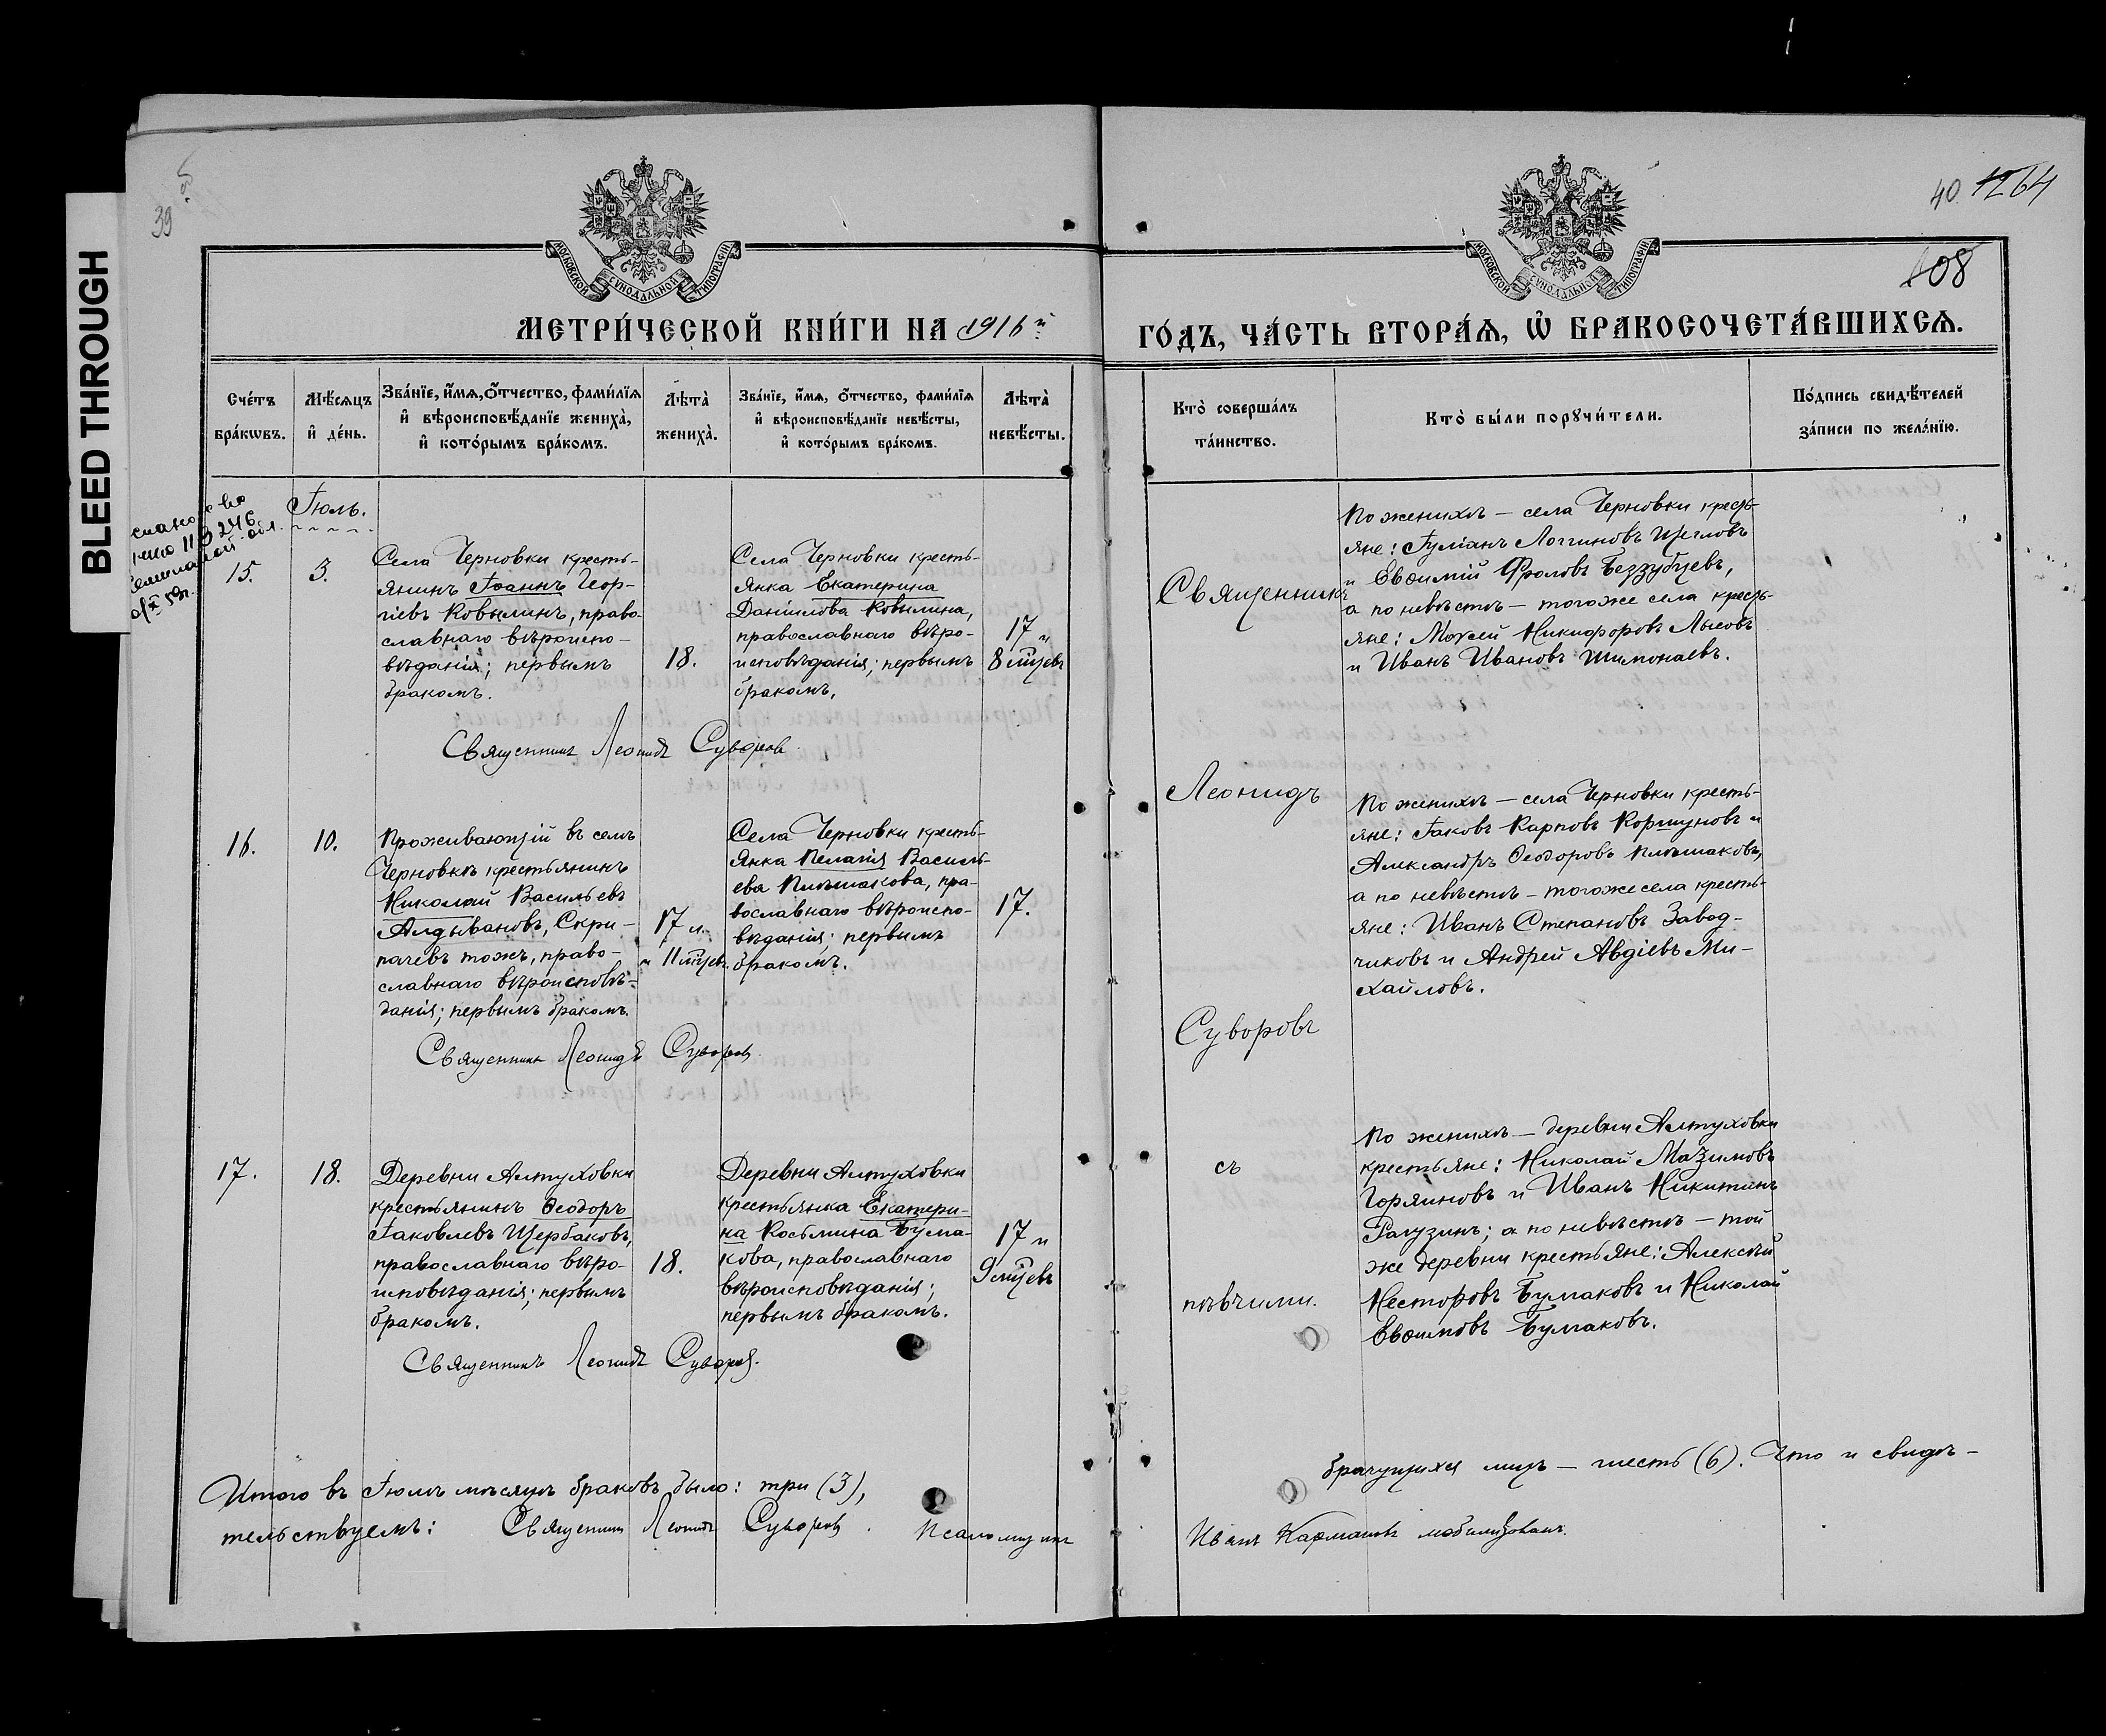 BLEED THROUGH
39
40 1264
108
МОСКОВСКОЙ СѴНОДАЛЬНОЙ ТИПОГРАФІИ
МОСКОВСКОЙ СѴНОДАЛЬНОЙ ТИПОГРАФІИ
МЕТРИ́ЧЕСКОЙ КНИ́ГИ НА 1916й
ГО́ДЪ, ЧА́СТЬ ВТОРА́Ѧ, Ѽ БРАКОСОЧЕТА́ВШИХСѦ.
Сче́тъ
бра́кѡвъ.
Мѣ́сѧцъ
и҆ де́нь.
Зва́нїе, и҆́мѧ, ѻ҆́тчество, фами́лїѧ
и҆ вѣроисповѣ́данїе жениха̀,
и҆ кото́рымъ бра́комъ.
Лѣта̀
жениха̀.
Зва́нїе, и҆́мѧ, ѻ҆́тчество, фами́лїѧ
и҆ вѣроисповѣ́данїе невѣ́сты,
и҆ кото́рымъ бра́комъ.
Лѣта̀
невѣ́сты.
Кто̀ соверша́лъ
та́инство.
Кто̀ бы́ли порꙋчи́тели.
По́дпись свидѣ́телей
за́писи по жела́нїю.
Іюль.
15.
3.
Села Черновки кресть-
янинъ Іоаннъ Геор-
гіевъ Ковылинъ, право-
славнаго вѣроиспо-
вѣданія; первымъ
бракомъ.
18.
Села Черновки кресть-
янка Екатерина
Даніилова Ковылина,
православнаго вѣро-
исповѣданія; первымъ
бракомъ.
17 и
8 м̃цевъ
Священникъ Леонидъ Суворовъ
Священникъ
По женихѣ — села Черновки кресть-
яне: Іуліанъ Логгиновъ Щегловъ
и Евѳимій Фроловъ Беззубцевъ,
а по невѣстѣ — тогоже села кресть-
яне: Моѵсей Никифоровъ Лысовъ
и Иванъ Ивановъ Шимонаевъ.
16.
10.
Проживающій въ селѣ
Черновкѣ крестьянинъ
Николай Васильевъ
Алдывановъ, Скри-
пачевъ тожъ, право-
славнаго вѣроисповѣ-
данія; первымъ бракомъ.
17 л.
и 11 м̃цевъ.
Села Черновки кресть-
янка Пелагія Василь-
ева Плѣшакова, пра-
вославнаго вѣроиспо-
вѣданія; первымъ
бракомъ.
17.
Священникъ Леонидъ Суворовъ
Леонидъ
По женихѣ — села Черновки кресть-
яне: Іаковъ Карповъ Коршуновъ и
Александръ Ѳеодоровъ Плѣшаковъ,
а по невѣстѣ — тогоже села кресть-
яне: Иванъ Степановъ Завод-
чиковъ и Андрей Авдіевъ Ми-
хайловъ.
Суворовъ
17.
18.
Деревни Алтуховки
крестьянинъ Ѳеодоръ
Іаковлевъ Щербаковъ,
православнаго вѣро-
исповѣданія; первымъ
бракомъ.
18.
Деревни Алтуховки
крестьянка Екатери-
на Косьмина Бума-
кова, православнаго
вѣроисповѣданія;
первымъ бракомъ.
17 и
9 м̃цевъ
Священникъ Леонидъ Суворовъ.
съ
пѣвчими.
По женихѣ — деревни Алтуховки
крестьяне: Николай Мазимовъ
Горяиновъ и Иванъ Никитинъ
Рагузинъ; а по невѣстѣ — той
же деревни крестьяне: Алексѣй
Несторовъ Бумаковъ и Николай
Евѳимовъ Бумаковъ.
Итого въ Іюлѣ мѣсяцѣ браковъ было: три (3),
брачущихся лицъ — шесть (6). Что и свидѣ-
тельствуемъ: Священникъ Леонидъ Суворовъ. Псаломщикъ
Иванъ Кармановъ мобилизованъ.